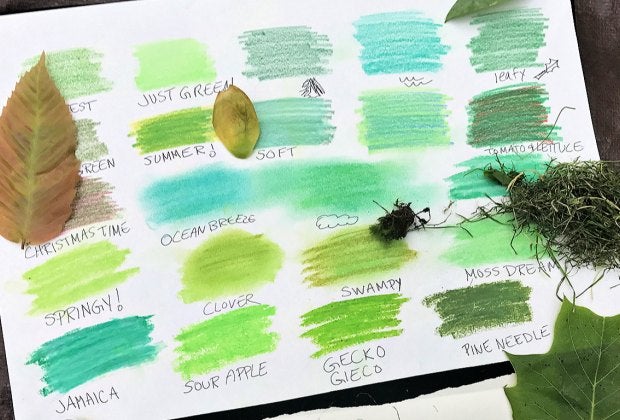 EST
JUST GREEN
leafy
GREEN
SUMMER!
SOFT
TOMATO & LETTUCE
CHRISTMAS TIME
OCEAN BREEZE
SPRINGY!
CLOVER
SWAMPY
MOSS DREAM
JAMAICA
SOUR APPLE
GECKO
GIECO
PINE NEEDLE